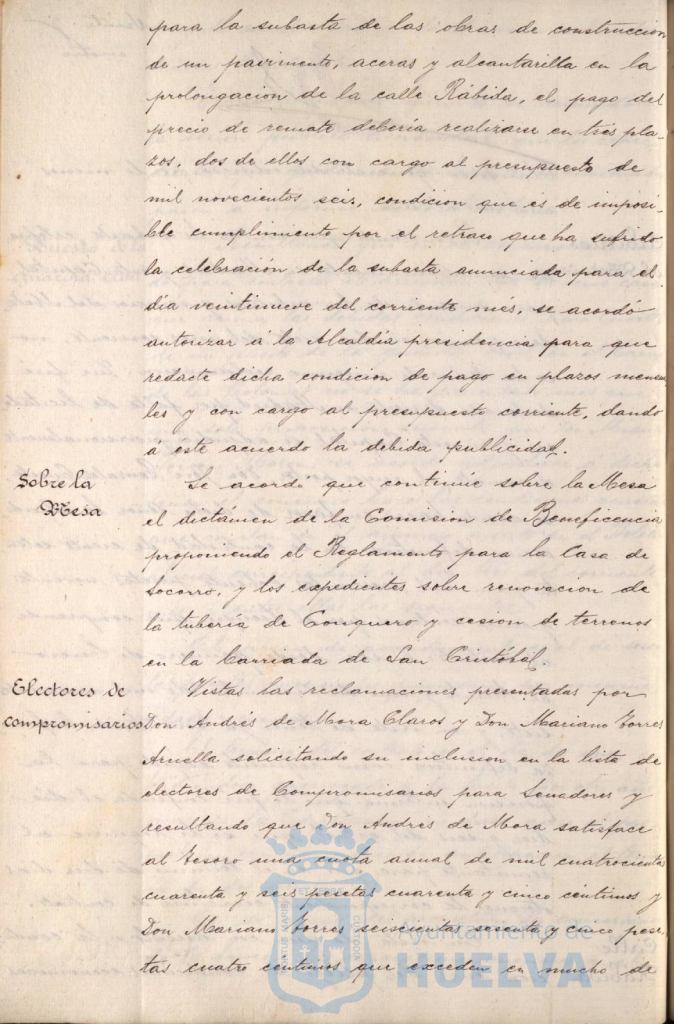 para la subasta de las obras de construccion
de un pavimento, aceras y alcantarilla en la
prolongacion de la calle Rábida, el pago del
precio de remate debería realizarse en tres pla-
zos, dos de ellos con cargo al presupuesto de
mil novecientos seis, condicion que es de imposi-
ble cumplimiento por el retraso que ha sufrido
la celebración de la subasta anunciada para el
día veintinueve del corriente més, se acordó
autorizar á la Alcaldía presidencia para que
redacte dicha condicion de pago en plazos mensua-
les y con cargo al presupuesto corriente, dando
á este acuerdo la debida publicidad.
Sobre la
Mesa
Se acordó que continúe sobre la Mesa
el dictámen de la Comision de Beneficencia
proponiendo el Reglamento para la Casa de
Socorro, y los expedientes sobre renovacion de
la tubería de Conquero y cesion de terrenos
en la barriada de San Cristóbal.
Electores de
compromisarios
Vistas las reclamaciones presentadas por
Don Andrés de Mora Claros y Don Mariano Torres
solicitando su inclusion en la lista de
electores de Compromisarios para Senadores y
resultando que Don Andrés de Mora satisface
al Tesoro una cuota anual de mil cuatrocientas
cuarenta y seis pesetas cuarenta y cinco céntimos y
Don Mariano Torres seiscientas sesenta y cinco pese-
tas cuatro centimos que exceden en mucho de
Ayuntamiento de
HUELVA